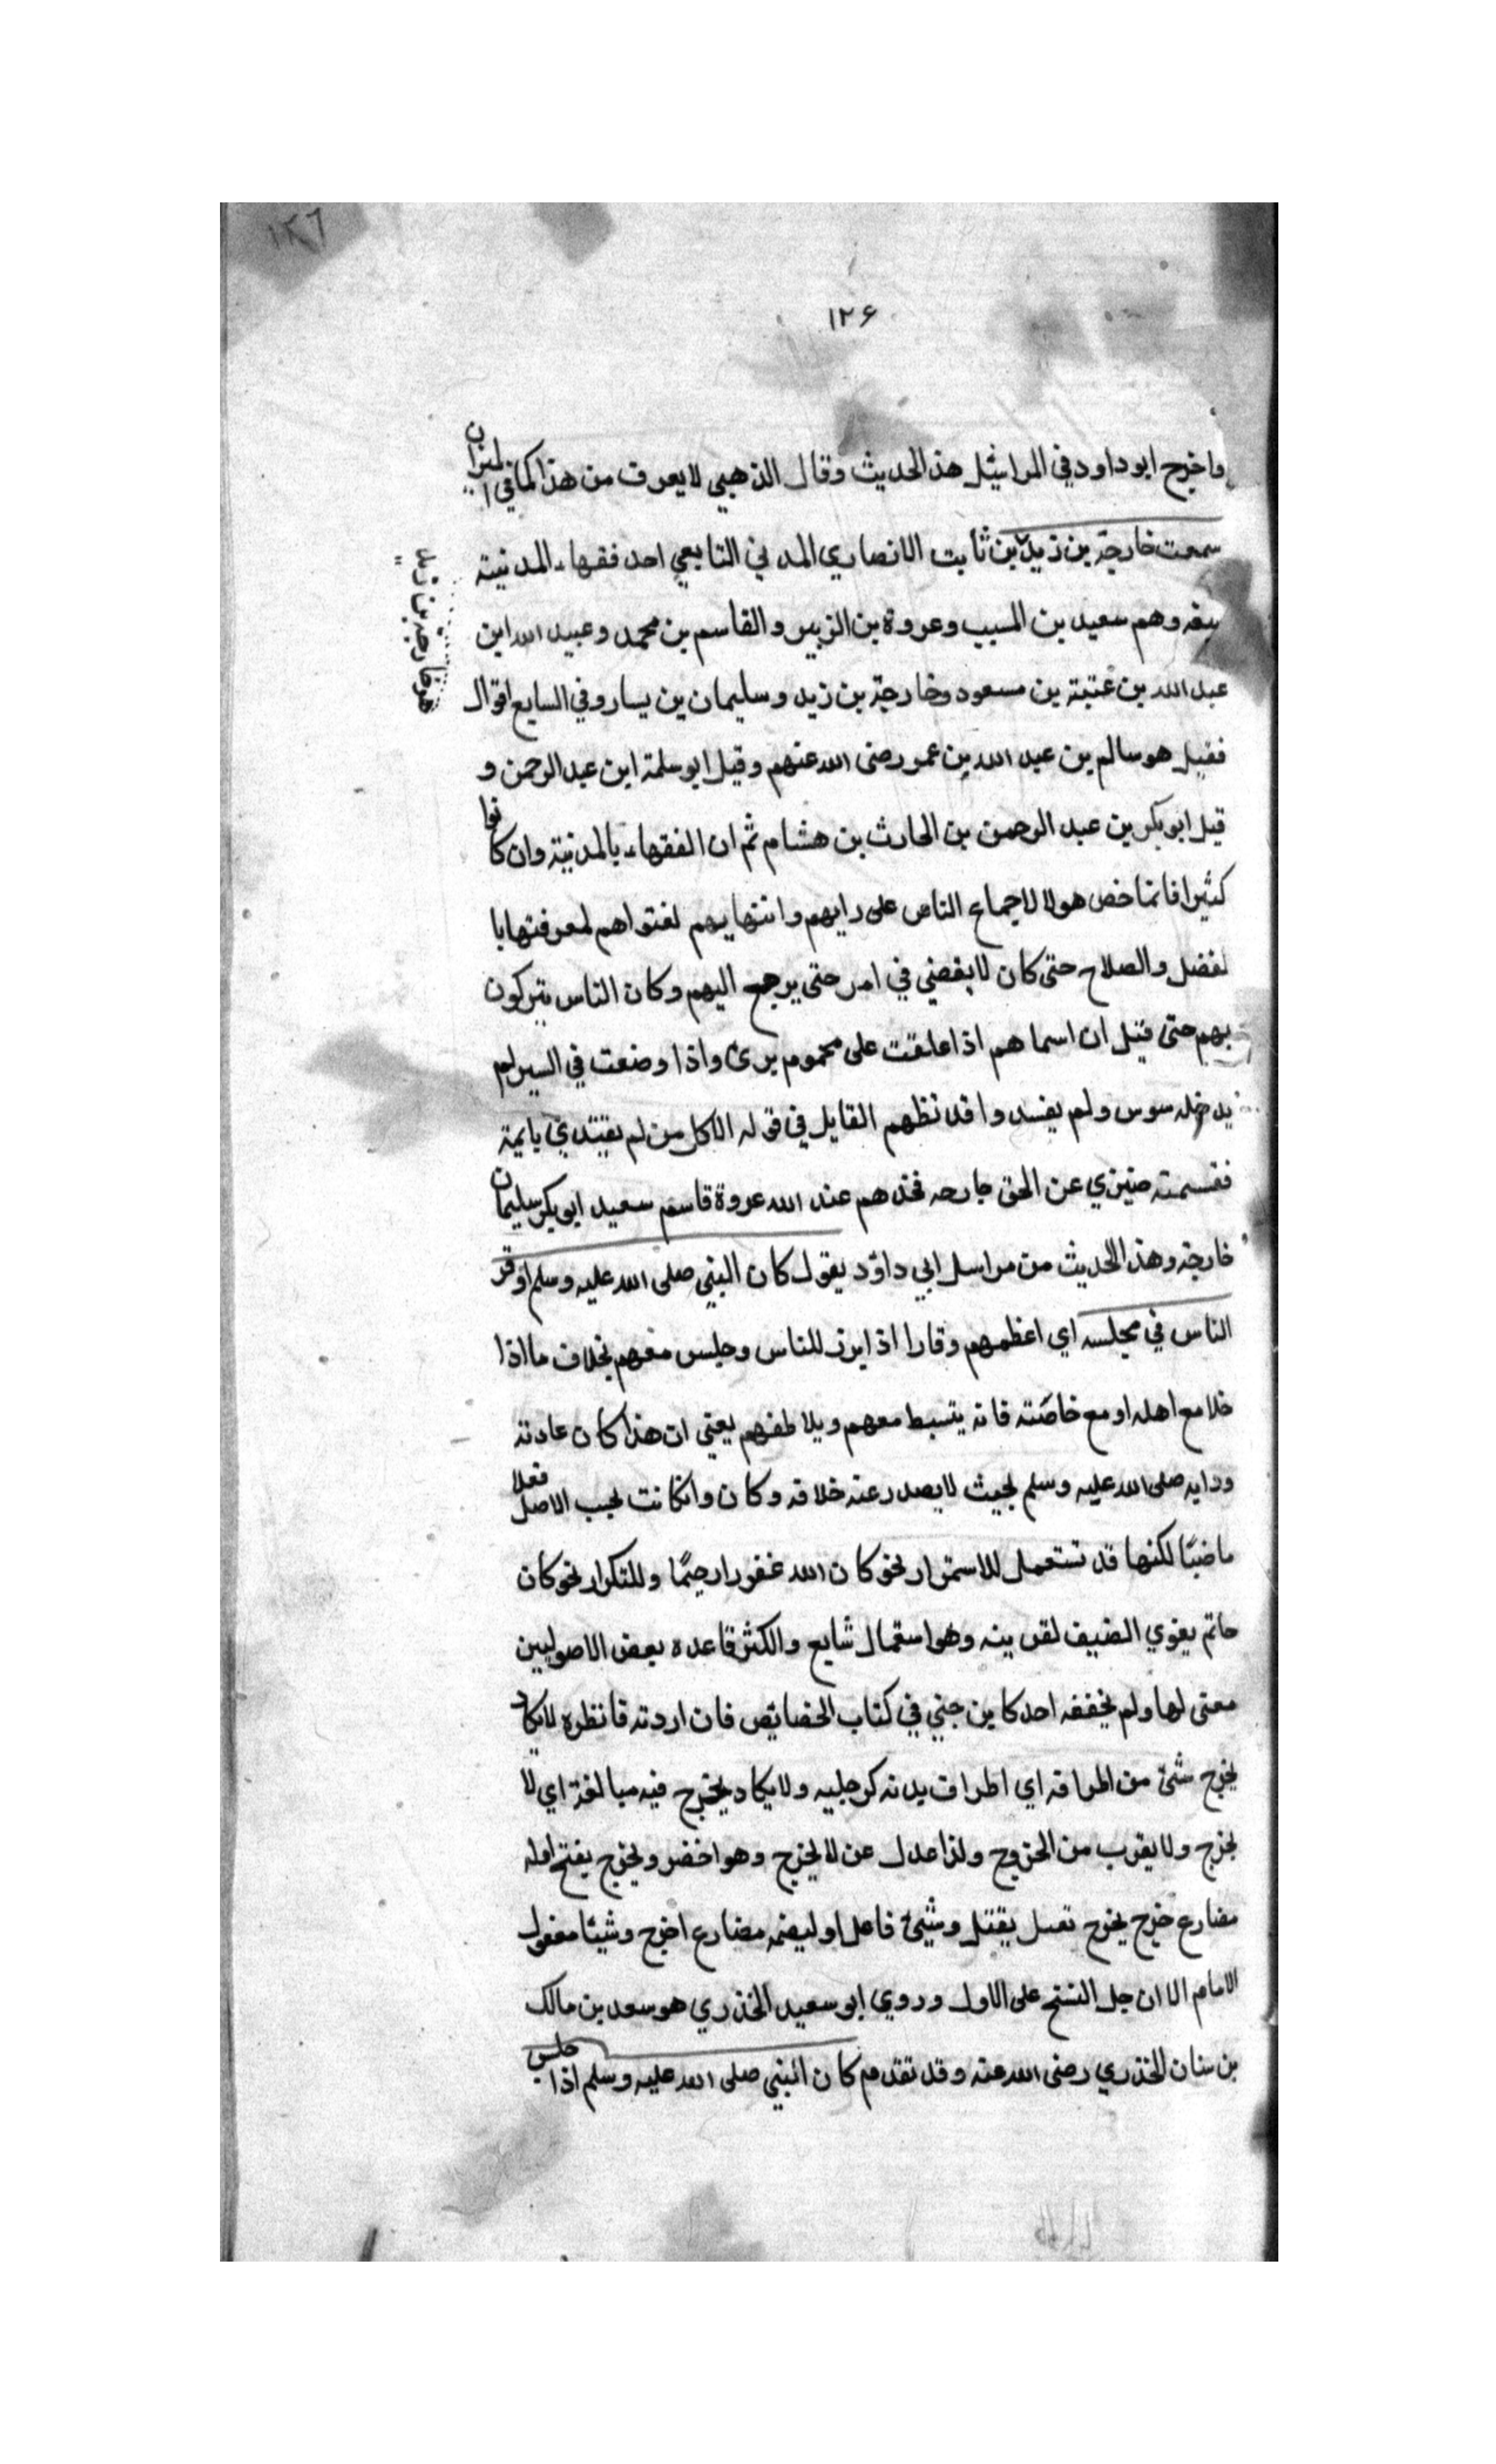 ١٢٦
١٢۶
واخرج ابو داود في المراسيل هذ الحديث وقال الذهبي لا يعرف من هذا كما في الميزان
سمعت خارجة بن زيد بن ثابت الانصاري المدني التابعي احد فقهاء المدنية
سبعة وهم سعيد بن المسيب وعروة بن الزبير والقاسم بن محمد وعبيد الله ابن
عبد الله بن عتبة بن مسعود وخارجة بن زيد وسليمان بن يسار وفي السابع اقوال
فقيل هو سالم بن عبد الله بن عمر رضى الله عنهم وقيل ابو سلمة ابن عبد الرحمن و
قيل ابو بكر بن عبد الرحمن بن الحارث بن هشام ثم ان الفقهاء بالمدنية وان كانوا
كثيرا فانما خص هولا لاجماع الناس على رايهم وانتهايهم لفتواهم لمعرفتها با
لفضل والصلاح حتى كان لا يقضي في امر حتى يرجع اليهم وكان الناس يتبركون
بهم حتى قيل ان اسماهم اذا علقت على محموم برئ واذا وضعت في السير لم
يدخله سوس ولم يفسد وا قد نظهم القايل في قوله الا كل من لم يقتدي بايمة
فقسمته ضيزي عن الحق جارحه فخذهم عند الله عروة قاسم سعيد ابو بكر سليمان
خارجة وهذ الحديث من مراسل ابي داوٓد يقول كان النبي صلى الله عليه وسلم اوقر
الناس في مجلسه اي اعظمهم وقارا اذ ابرز للناس وجلس معهم بخلاف ما اذا
خلا مع اهله او مع خاصّته فانه يتسبط معهم ويلاطفهم يعني ان هذا كان عادته
ودايه صلى الله عليه وسلم بحيث لا يصدر عنه خلافه وكان وانكانت بحسب الاصل فعلا
ماضيًا لكنها قد تستعمل للاستمرار نحو كان الله غفورا رحيمًا وللتكرار نحو كان
حاتم يقوي الضيف لقرينه وهو استعمال شايع والكثر قاعده بعض الاصوليين
معنى لها ولم يخففه احد كابن جني في كتاب الخصايص فان اردته فانظره لا يكاد
يخرج شئ من اطرافه اي اطراف بدنه كرجليه ولا يكاد يخرج فيه مبالغة اي لا
يخرج ولا يقرب من الخروج ولذا عدل عن لا يخرج وهو اخضر ويخرج بفتح اوله
مضارع خرج يخرج تعسل يقتل وشئ فاعل او ليضمه مضارع اخرج وشيئا مفعول
الامام الا ان جل النسخ على الاول وروي ابو سعيد الخذري هو سعد بن مالك
بن سنان الخذري رضى الله عنه وقد تقدم كان النبي صلى الله عليه وسلم اذا جلس
خارجة بن زيد